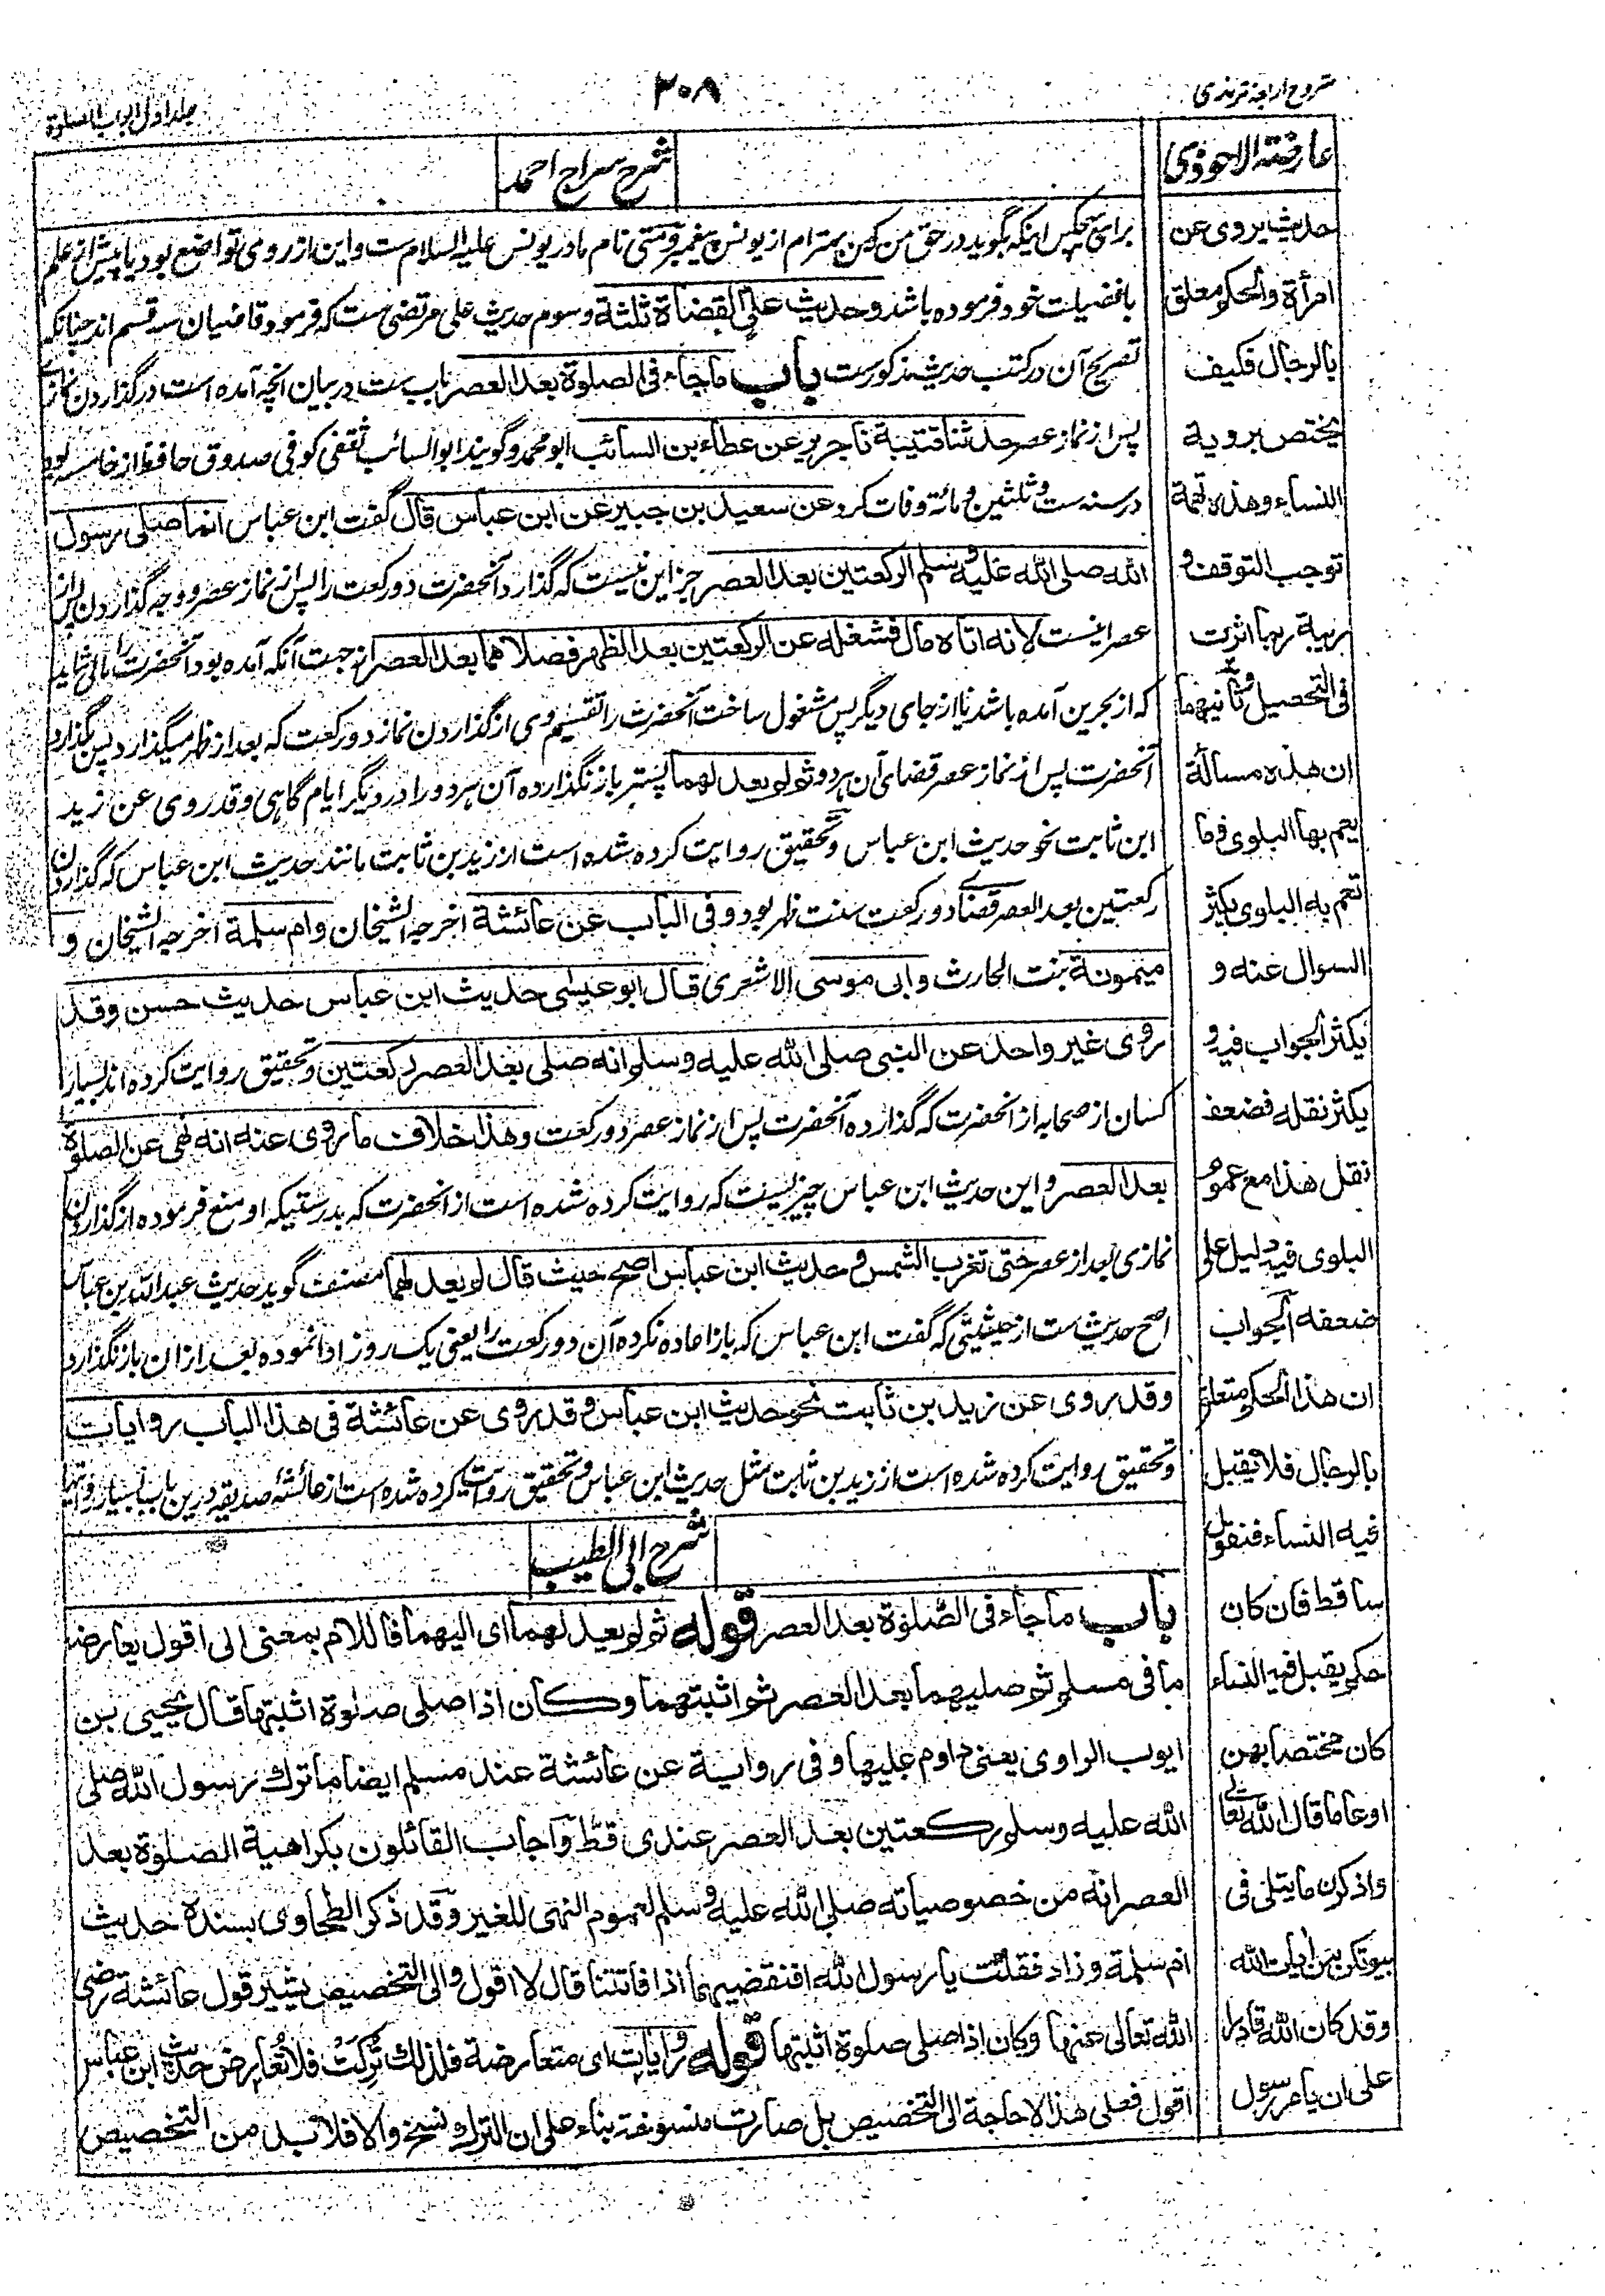 شروح اربعہ ترمذی
۳۰۸
جلد اول ابواب الصلوة
عارضة الاحوذی
حدیث یروی عن
امرأة والحکم معلق
بالرجال فکیف
یختص برویة
النساء وهذه تهمة
توجب التوقف و
ریبة ربما اثرت
فی التحصیل وثانیهما
ان هذه مسألة
یعم بها البلوی فما
تعم به البلوی یکثر
السوال عنه و
یکثر الجواب فیه و
یکثر نقله فضعف
نقل هذا مع عموم
البلوی فیه دلیل علی
ضعفه الجواب
ان هذا الحکم متعلق
بالرجال فلا یقبل
فیه النساء فنقول
ساقط فان کان
حکم یقبل فیه النساء
کان مختصا بهن
او عاما قال الله تعالی
واذکرن ما یتلی فی
بیوتکن من آیات الله
وقد کان الله قادرا
علی ان یامر رسول
شرح سراج احمد
برای هیچکس اینکه بگوید در حق من که من بهترم از یونس پیغمبر و متی نام مادر یونس علیه السلام ست و این از روی تواضع بود یا پیش از علم
بافضیلت خود فرموده باشد وحدیث علی القضاة ثلثة و سوم حدیث علی مرتضی ست که فرمود قاضیان سه قسم اند چنانکه
تصریح آن در کتب حدیث مذکورست باب ما جاء فی الصلوة بعد العصر باب ست در بیان آنچه آمده است در گذاردن نماز
پس از نماز عصر حدثنا قتیبة نا جریر عن عطاء بن السائب ابو محمد و گویند ابو السائب ثقفی کوفی صدوق حافظ از خامسه بود
در سنه ست و ثلثین و مائه وفات کرد عن سعید بن جبیر عن ابن عباس قال گفت ابن عباس انما صلی رسول
الله صلی الله علیه وسلم الرکعتین بعد العصر جز این نیست که گذارد آنحضرت دو رکعت را پس از نماز عصر و وجه گذاردن پس از
عصر اینست لانه اتاه مال فشغله عن الرکعتین بعد الظهر فصلاهما بعد العصر از جهت آنکه آمده بود آنحضرت را مالی شاید
که از بحرین آمده باشد یا از جای دیگر پس مشغول ساخت آنحضرت را تقسیم وی از گذاردن نماز دو رکعت که بعد از ظهر میگذارد پس بگذارد
آنحضرت پس از نماز عصر قضای آن هر دو ثم لم یعد لهما پستر باز نگذارده آن هر دو را در دیگر ایام گاهی وقد روی عن زید
ابن ثابت نحو حدیث ابن عباس و تحقیق روایت کرده شده است از زید بن ثابت مانند حدیث ابن عباس که گذاردن
رکعتین بعد العصر قضای دو رکعت سنت ظهر بود وفی الباب عن عائشة اخرجه الشیخان وام سلمة اخرجه الشیخان و
میمونة بنت الحارث وابی موسی الاشعری قال ابو عیسی حدیث ابن عباس حدیث حسن وقد
روی غیر واحد عن النبی صلی الله علیه وسلم انه صلی بعد العصر رکعتین و تحقیق روایت کرده اند بسیار
کسان از صحابه از آنحضرت که گذارده آنحضرت پس از نماز عصر دو رکعت وهذا خلاف ما روی عنه انه نهی عن الصلوة
بعد العصر و این حدیث ابن عباس چیزیست که روایت کرده شده است از آنحضرت که بدرستیکه او منع فرموده از گذاردن
نمازی بعد از عصر حتی تغرب الشمس وحدیث ابن عباس اصح حیث قال لم یعد لهما مصنف گوید حدیث عبدالله بن عباس
اصح حدیث ست از حیثیتی که گفت ابن عباس که باز اعاده نکرده آن دو رکعت را یعنی یک روز ادا نموده بعد از ان باز نگذارد
وقد روی عن زید بن ثابت نحو حدیث ابن عباس وقد روی عن عائشة فی هذا الباب روایات
و تحقیق روایت کرده شده است از زید بن ثابت مثل حدیث ابن عباس و تحقیق روایت کرده شده است از عائشه صدیقه درین باب بسیار روایتها
شرح ابی الطیب
باب ما جاء فی الصلوة بعد العصر قوله ثم لم یعد لهما ای الیهما فاللام بمعنی الی اقول یعارضه
ما فی مسلم ثم صلیهما بعد العصر ثم اثبتهما وکان اذا صلی صلوة اثبتها قال یحیی بن
ایوب الراوی یعنی داوم علیها وفی روایة عن عائشة عند مسلم ایضا ما ترک رسول الله صلی
الله علیه وسلم رکعتین بعد العصر عندی قط واجاب القائلون بکراهیة الصلوة بعد
العصر انه من خصوصیاته صلی الله علیه وسلم لعموم النهی للغیر وقد ذکر الطحاوی بسنده حدیث
ام سلمة وزاد فقلت یا رسول الله افنقضیهما اذا فاتتنا قال لا اقول والی التخصیص یشیر قول عائشة رضی
الله تعالی عنها وکان اذا صلی صلوة اثبتها قوله روایات ای متعارضة فلذلک ترکت فلا تعارض حدیث ابن عباس
اقول فعلی هذا لا حاجة الی التخصیص بل صارت منسوخة بناء علی ان الترک نسخ والا فلا بد من التخصیص